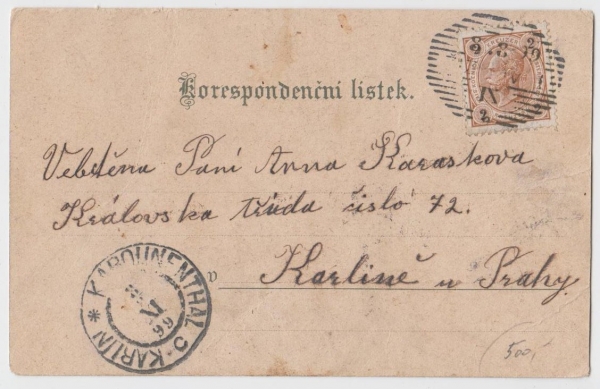 Korespondenční lístek.
Vebtěna Paní Anna Karaskova
Královska třída čislo 72.
v Karlině u Prahy.
KAROLINENTHAL
C-KARLIN *
VI
99
2 2
500,-